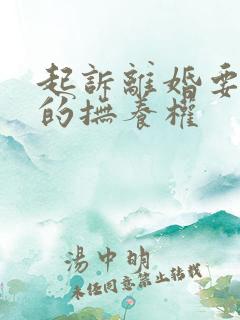 起訴離婚要
的撫養權
湯中明
未經同意禁止轉載